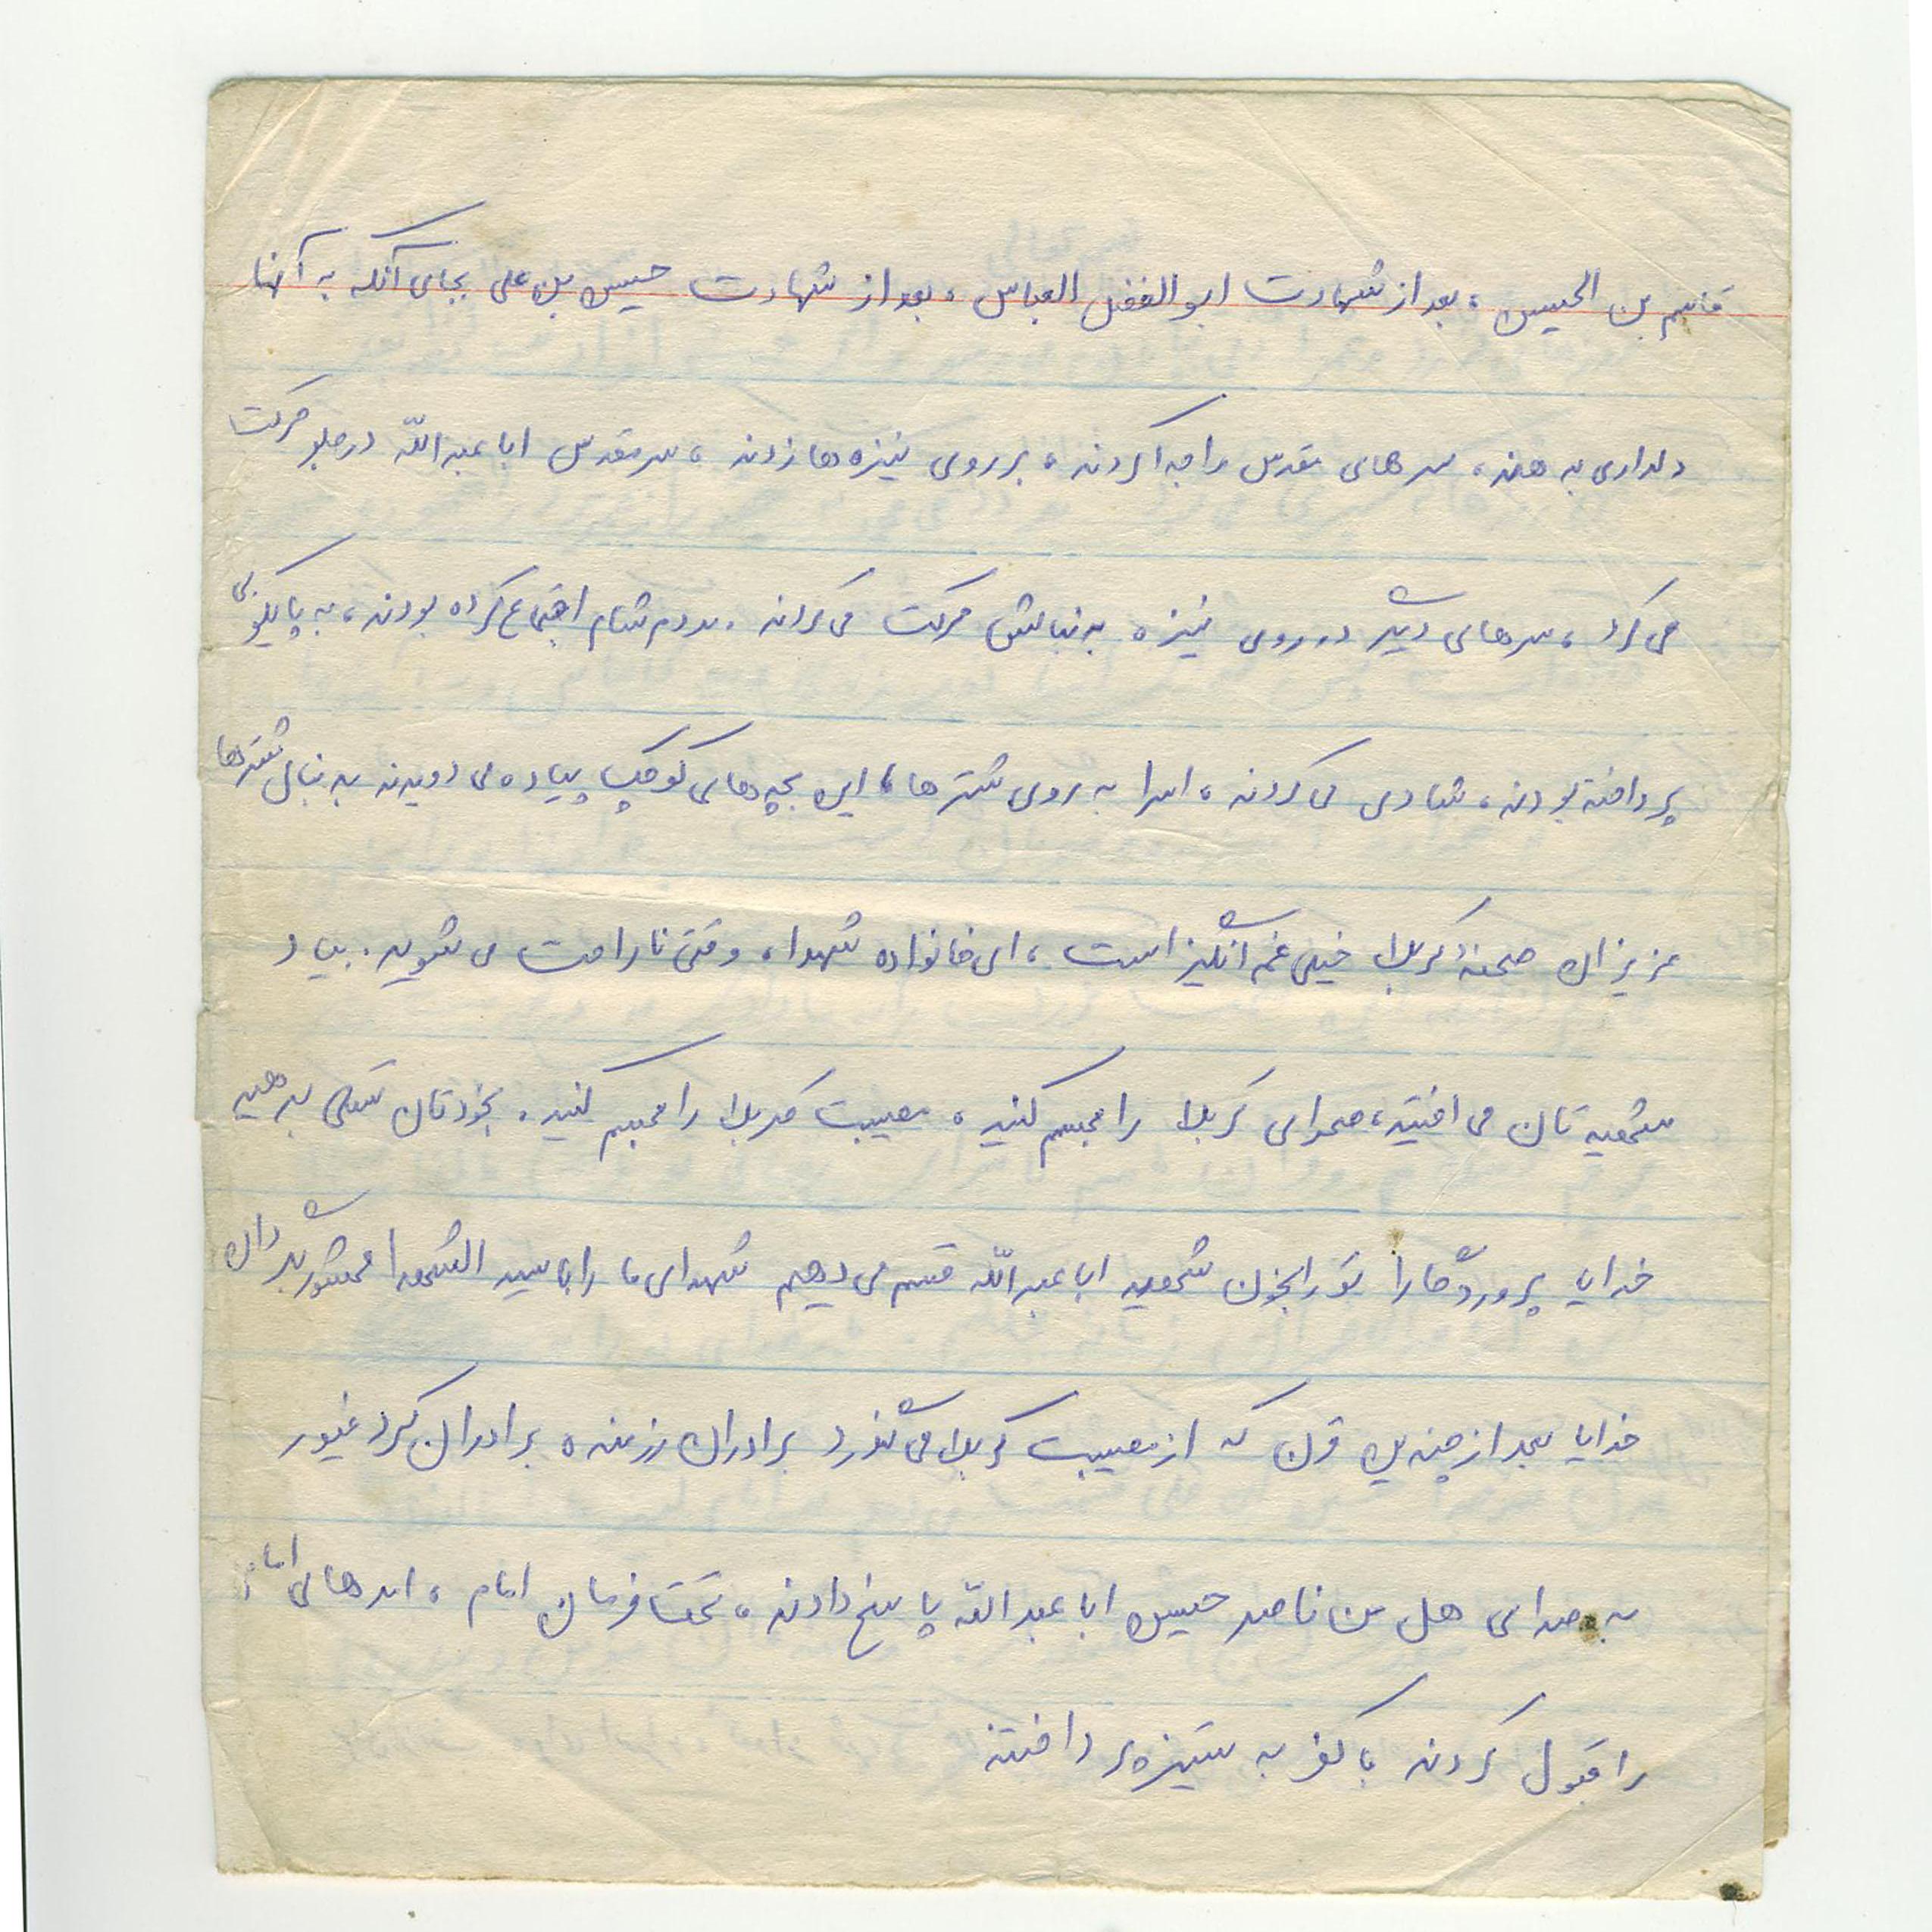 قاسم بن الحسین، بعد از شهادت ابوالفضل العباس، بعد از شهادت حسین بن علی بجای آنکه به آنها
دلداری به هند، سرهای مقدس را جدا کردند، بر روی نیزه ها زدند، سر مقدس ابا عبدالله در جلو حرکت
می کرد، سرهای دیگر در روی نیزه به نبالش حرکت می کردند. مردم شام اجتماع کرده بودند، به پایکوبی
پرداخته بودند، شادی می کردند، اسرا به روی شترها، این بچه های کوچک پیاده می دویدند به نبال شترها
عزیزان صحنهٔ کربلا خیلی غم انگیز است، ای خانواده شهدا، وقتی ناراحت می شوید. بیاد
شهیدتان می افتید، صحرای کربلا را مجسم کنید، مصیبت کربلا را مجسم کنید. بخودتان تسلی بدهید
خدایا پروردگارا تو را بخون شهید ابا عبدالله قسم می دهیم شهدای ما را با سید الشهدا محشور بگردان
خدایا بعد از چندین قرن که از مصیبت کربلا می گذرد برادران رزمنده برادران کرد غیور
به صدای هل من ناصر حسین ابا عبدالله پاسخ دادند، تحت فرمان امام، امرهای امام
را قبول کردند با کفر به ستیزه پرداختند